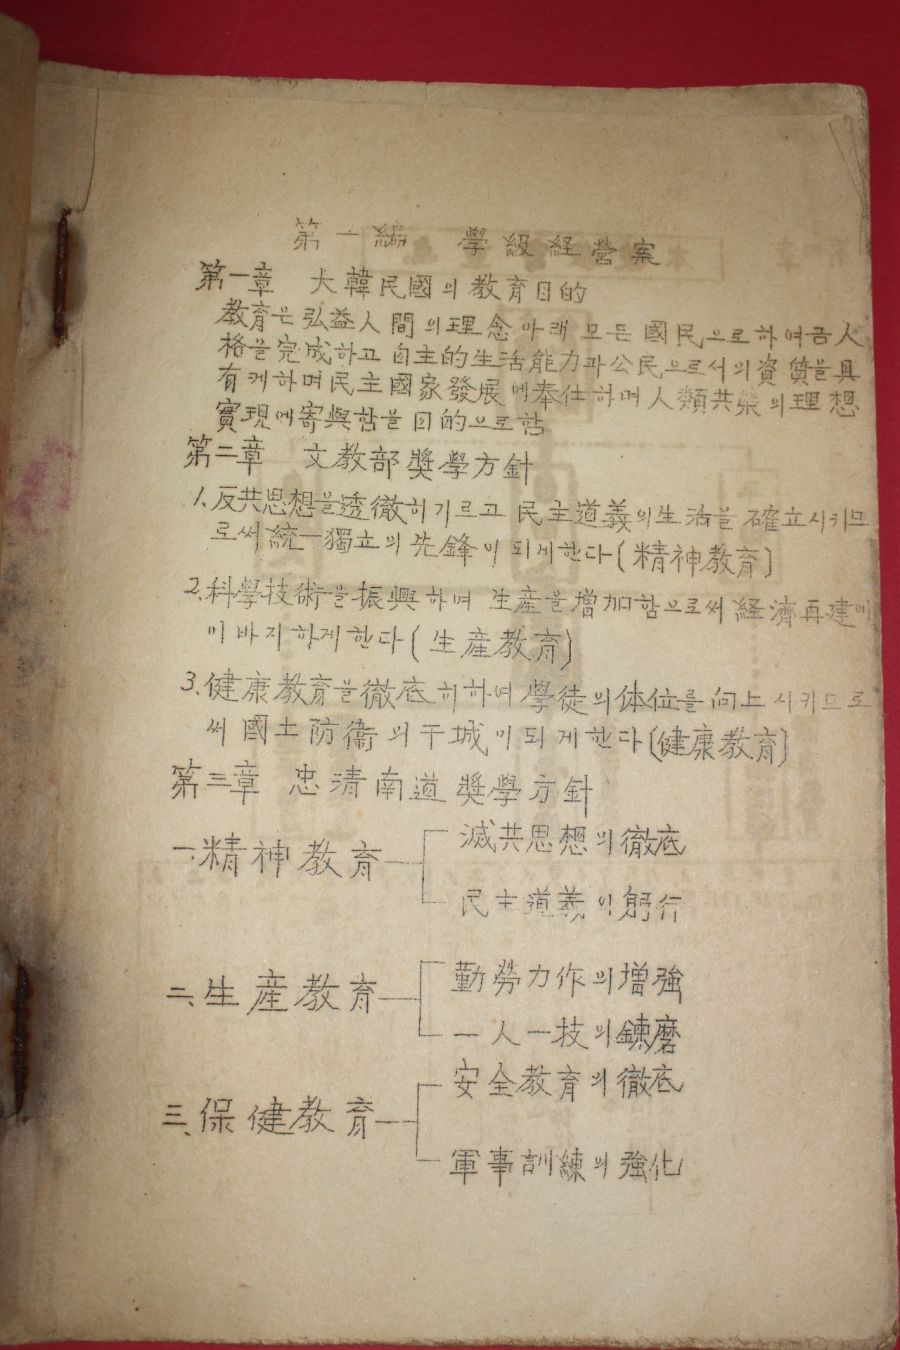 第一編 學級経營案
第一章 大韓民國의 教育目的
教育은 弘益人間의 理念아래 모든 國民으로하여금 人
格을 完成하고 自主的生活能力과 公民으로서의 資質을 具
有케하며 民主國家發展에 奉仕하며 人類共榮의 理想
實現에 寄與함을 目的으로함
第二章 文教部奬學方針
1. 反共思想을 透徹히기르고 民主道義의 生活을 確立시키므
로써 統一獨立의 先鋒이 되게한다(精神教育)
2. 科學技術을 振興하며 生産을 增加함으로써 経濟再建에
이바지하게한다(生産教育)
3. 健康教育을 徹底히하여 學徒의 体位를 向上시키므로
써 國土防衛의 干城이되게한다(健康教育)
第三章 忠清南道奬學方針
一. 精神教育
滅共思想의 徹底
民主道義의 躬行
二、生産教育
勤勞力作의 增強
一人一技의 鍊磨
三、保健教育
安全教育의 徹底
軍事訓練의 強化